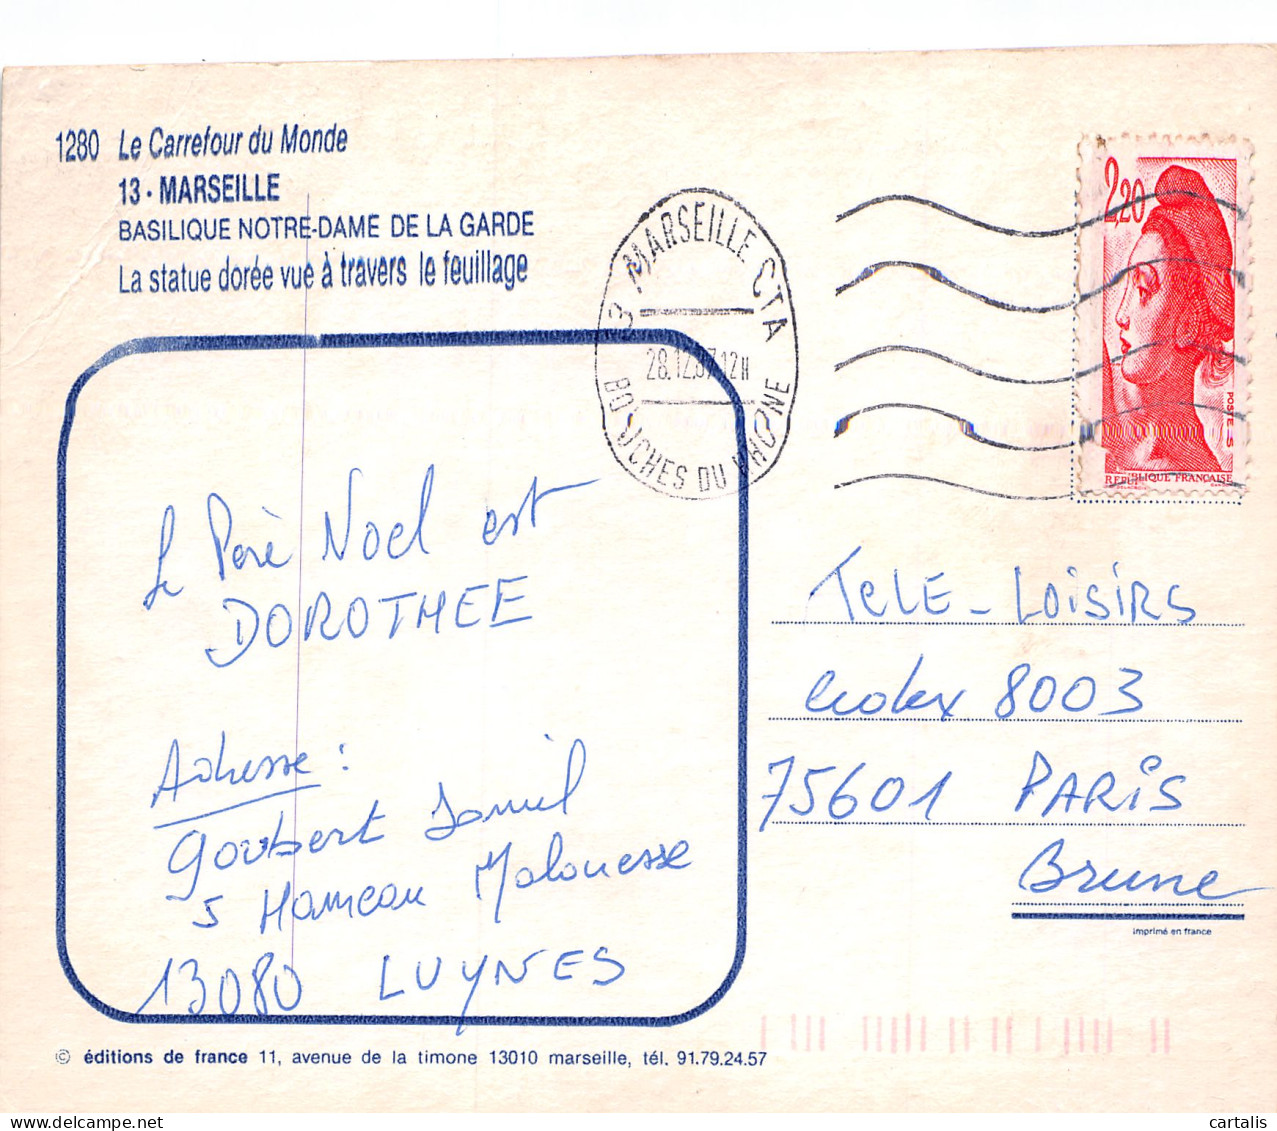 1280 Le Carrefour du Monde
13 - MARSEILLE
BASILIQUE NOTRE-DAME DE LA GARDE
La statue dorée vue à travers le feuillage
13 MARSEILLE CTA
28.12.87.12H
BOUCHES DU RHONE
2,20
POSTES
REPUBLIQUE FRANÇAISE
Le Père Noel est
DOROTHEE
Adresse :
Goubert
5 Hameau Malouesse
13080 LUYNES
TELE - LOISIRS
cedex 8003
75601 PARIS
Brune
imprimé en france
© éditions de france 11, avenue de la timone 13010 marseille, tél. 91.79.24.57
cartalis